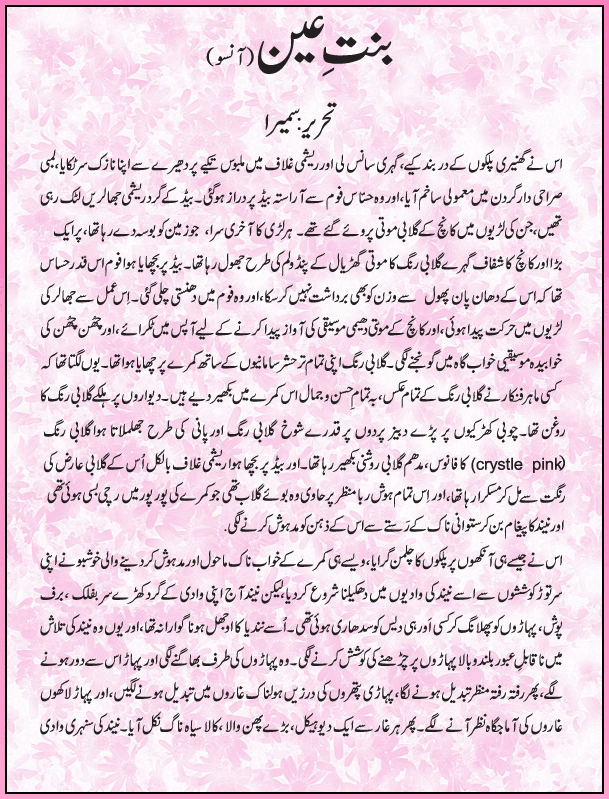 بنتِ عین (آنسو)
تحریر: سمیرا
اس نے گھنیری پلکوں کے در بند کیے، گہری سانس لی اور ریشمی غلاف میں ملبوس تکیے پر دھیرے سے اپنا نازک سر ٹکایا، لمبی
صراحی دار گردن میں معمولی سا خم آیا، اور وہ حسّاس فوم سے آراستہ بیڈ پر دراز ہوگئی۔ بیڈ کے گرد ریشمی جھالریں لٹک رہی
تھیں، جن کی لڑیوں میں کانچ کے گلابی موتی پروئے گئے تھے۔ ہر لڑی کا آخری سرا، جو زمین کو بوسہ دے رہا تھا، پر ایک
بڑا اور کانچ کا شفاف گہرے گلابی رنگ کا موتی گھڑیال کے پنڈولم کی طرح جھول رہا تھا۔ بیڈ پر بچھایا ہوا فوم اس قدر حساس
تھا کہ اس کے دھان پان پھول سے وزن کو بھی برداشت نہیں کر سکا، اور وہ فوم میں دھنستی چلی گئی۔ اِس عمل سے جھالر کی
لڑیوں میں حرکت پیدا ہوئی، اور کانچ کے موتی دھیمی موسیقی کی آواز پیدا کرنے کے لیے آپس میں ٹکرائے، اور چھن چھن کی
خوابیدہ موسیقیی خواب گاہ میں گونجنے لگی۔ گلابی رنگ اپنی تمام تر حشر سامانیوں کے ساتھ کمرے پر چھایا ہوا تھا۔ یوں لگتا تھا کہ
کسی ماہر فنکار نے گلابی رنگ کے تمام عکس، بہ تمام حسن و جمال اس کمرے میں بکھیر دیے ہیں۔ دیواروں پر ہلکے گلابی رنگ کا
روغن تھا۔ چوبی کھڑکیوں پر پڑے دبیز پردوں پر قدرے شوخ گلابی رنگ اور پانی کی طرح جھلملاتا ہوا گلابی رنگ
(crystle pink) کا فانوس، مدھم گلابی روشنی بکھیر رہا تھا۔ اور بیڈ پر بچھا ہوا ریشمی غلاف بالکل اُس کے گلابی عارض کی
رنگت سے مل کر مسکرا رہا تھا، اور اِس تمام ہوش ربا منظر پر حاوی وہ بوئے گلاب تھی جو کمرے کی پور پور میں رچی بسی ہوئی تھی
اور نیند کا پیغام بن کر ستوانی ناک کے رستے سے اس کے ذہن کو مدہوش کرنے لگی۔
اس نے جیسے ہی آنکھوں پر پلکوں کا چلمن گرایا، ویسے ہی کمرے کے خواب ناک ماحول اور مدہوش کر دینے والی خوشبو نے اپنی
سر توڑ کوششوں سے اسے نیند کی وادیوں میں دھکیلنا شروع کر دیا، لیکن نیند آج اپنی وادی کے گرد کھڑے سر بفلک، برف
پوش، پہاڑوں کو پھلانگ کر کسی اَور ہی دیس کو سدھاری ہوئی تھی۔ اُسے نندیا کا اوجھل ہونا گوارا نہ تھا، اور یوں وہ نیند کی تلاش
میں ناقابلِ عبور بلند و بالا پہاڑوں پر چڑھنے کی کوشش کرنے لگی۔ وہ پہاڑوں کی طرف بھاگنے لگی اور پہاڑ اس سے دور ہونے
لگے، پھر رفتہ رفتہ منظر تبدیل ہونے لگا، پہاڑی پتھروں کی درزیں ہولناک غاروں میں تبدیل ہونے لگیں، اور پہاڑ لاکھوں
غاروں کی آماجگاہ نظر آنے لگے۔ پھر ہر غار سے ایک دیو ہیکل، بڑے پھن والا، کالا سیاہ ناگ نکل آیا۔ نیند کی سنہری وادی